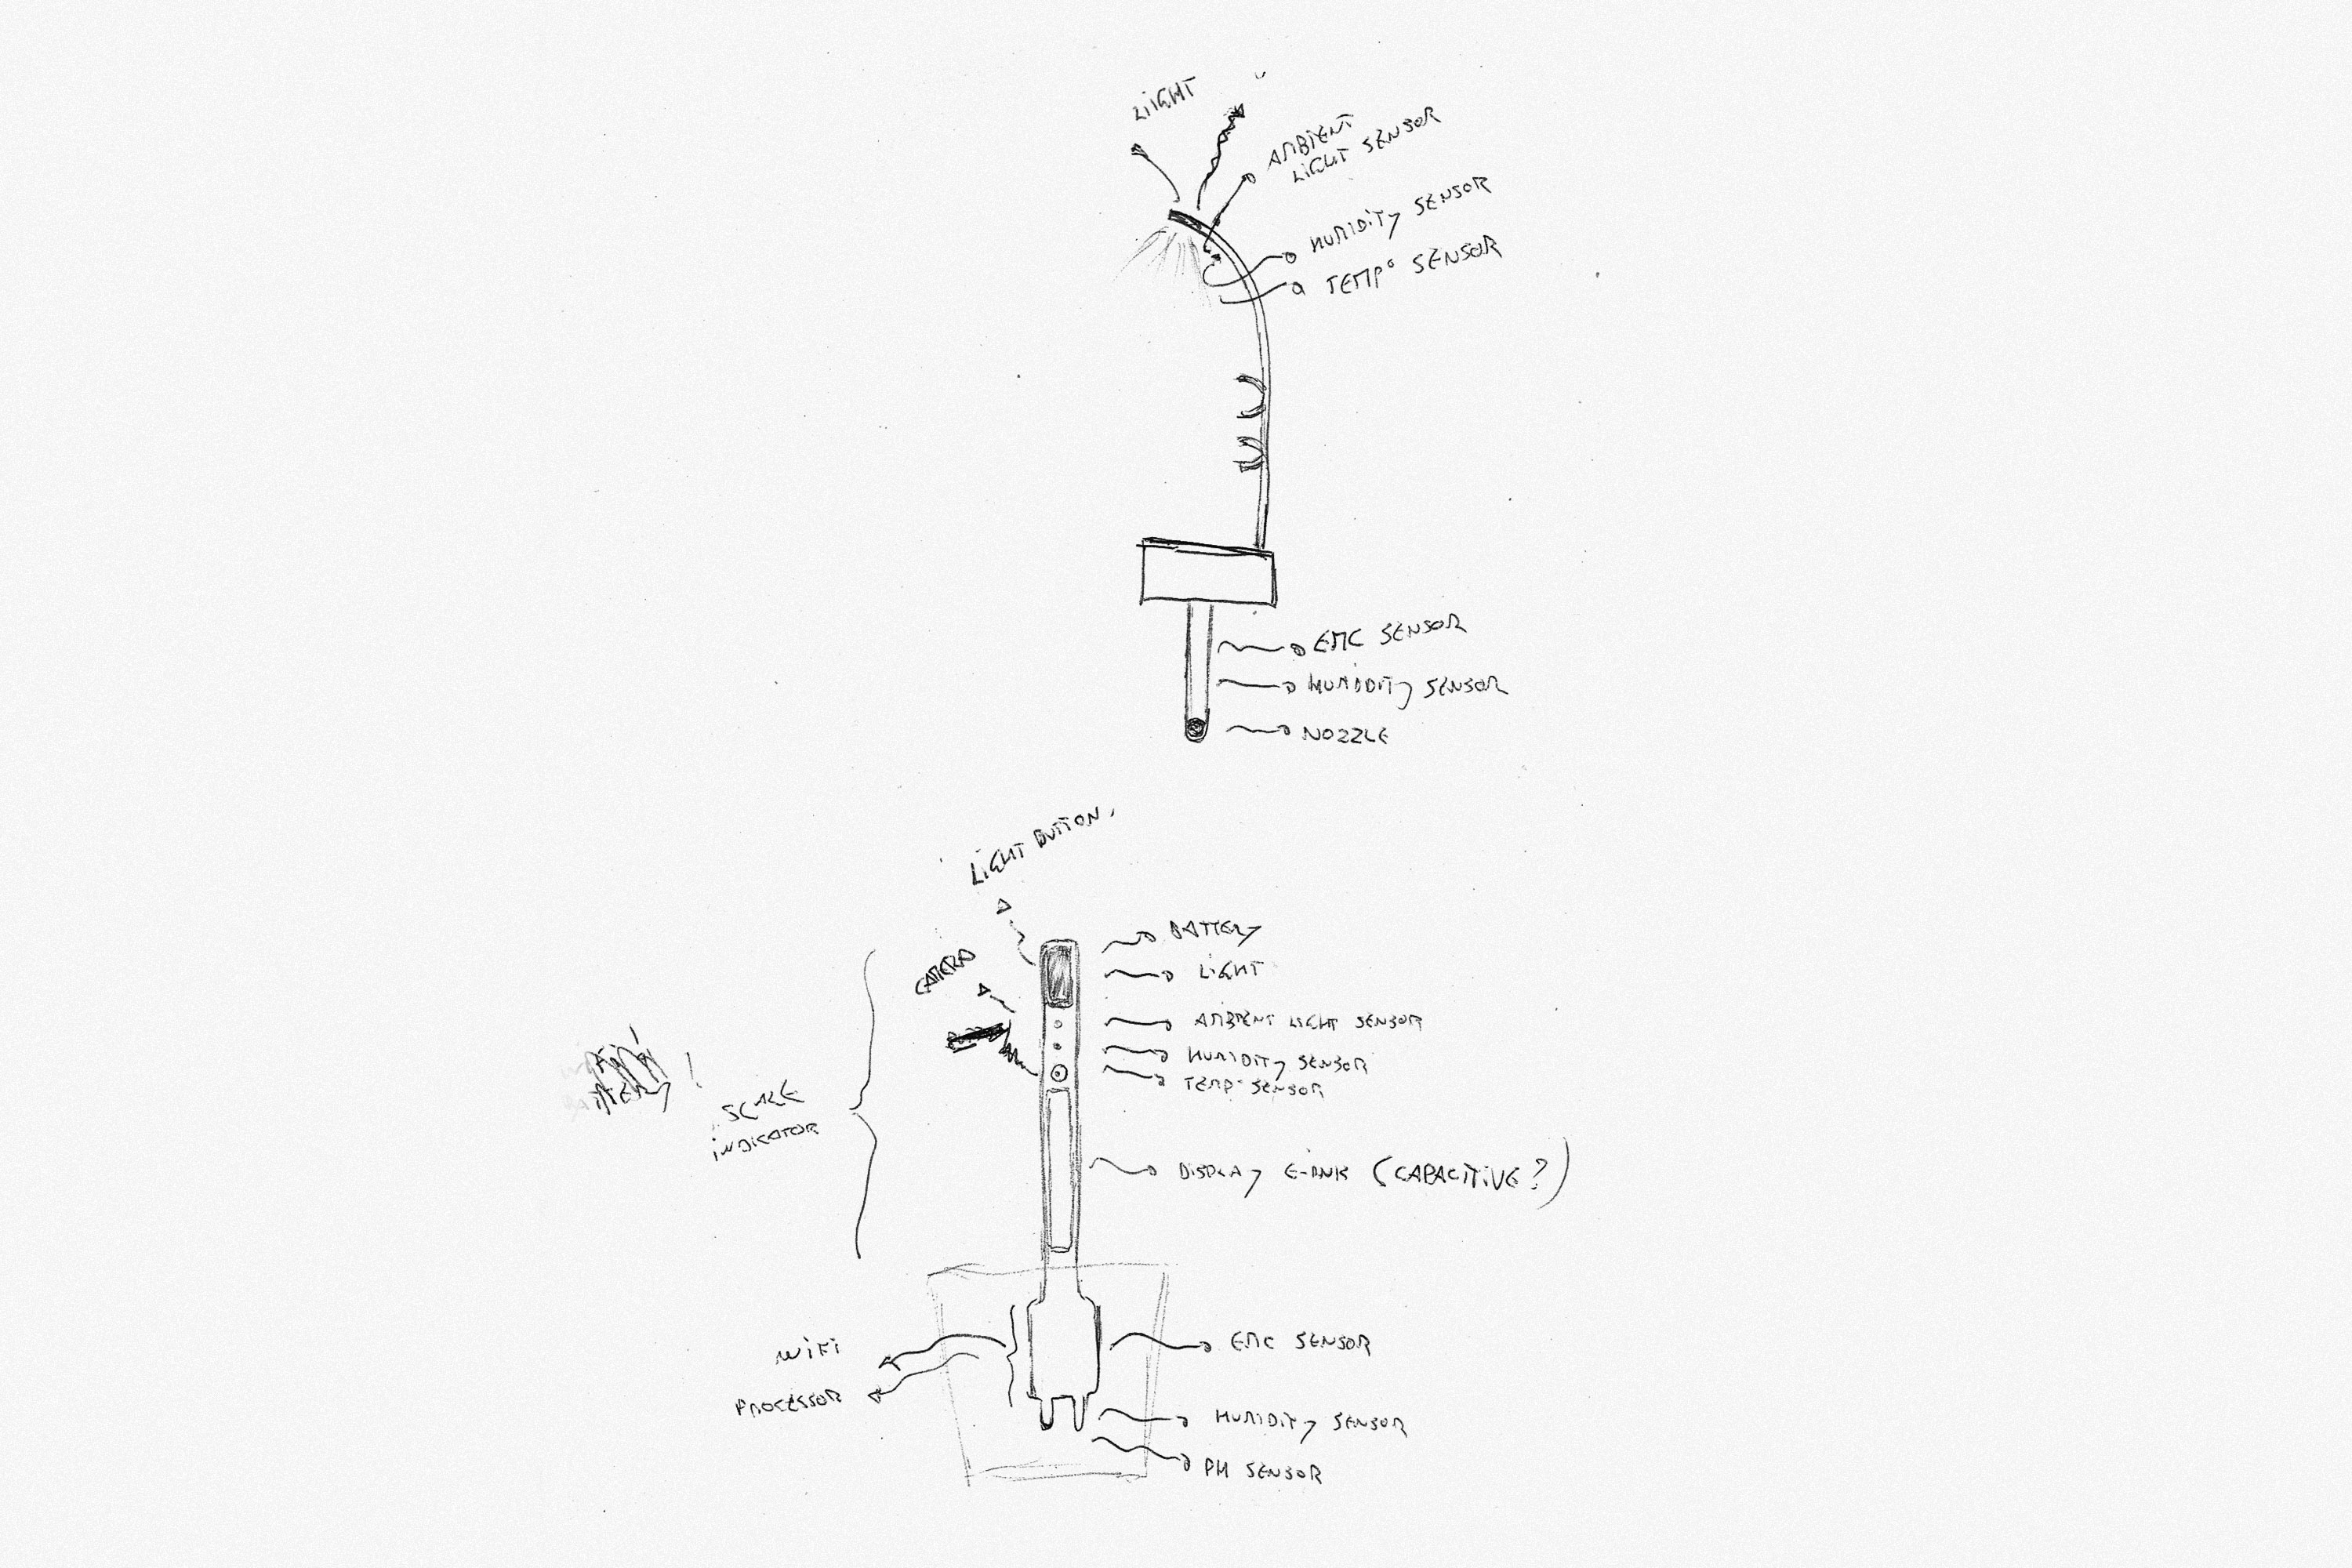 LIGHT
AMBIENT
LIGHT SENSOR
HUMIDITY SENSOR
TEMP° SENSOR
EMC SENSOR
HUMIDITY SENSOR
NOZZLE
LIGHT BUTTON
CAMERA
BATTERY
LIGHT
AMBIENT LIGHT SENSOR
HUMIDITY SENSOR
TEMP° SENSOR
SCALE
INDICATOR
DISPLAY E-INK (CAPACITIVE?)
WIFI
PROCESSOR
EMC SENSOR
HUMIDITY SENSOR
PH SENSOR